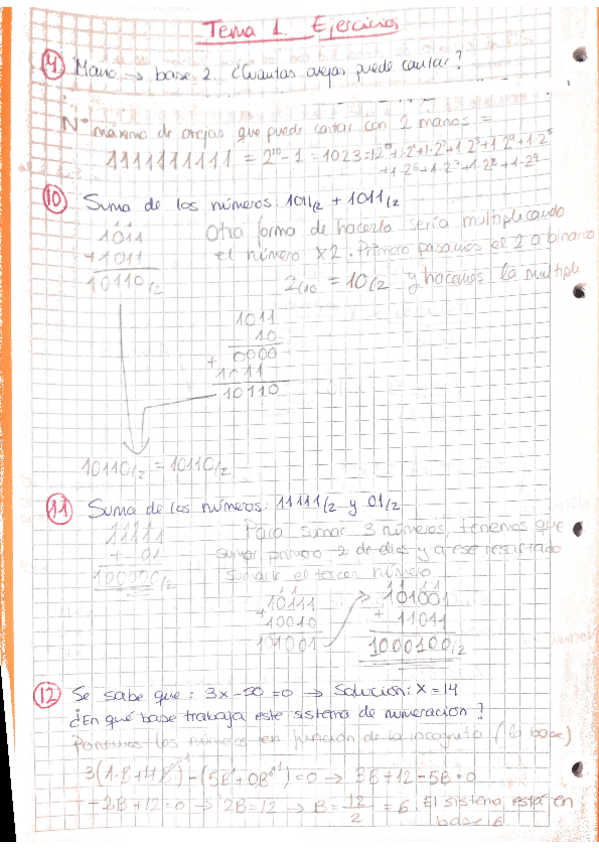 Tema 1. Ejercicios
4) Mano → base 2. ¿Cuantas ovejas puede contar?
Nº máximo de ovejas que puede contar con 2 manos =
1111111111 = 2^10 - 1 = 1023 = 1·2^0 + 1·2^1 + 1·2^2 + 1·2^3 + 1·2^4 + 1·2^5
+ 1·2^6 + 1·2^7 + 1·2^8 + 1·2^9
10) Suma de los números: 1011/2 + 1011/2
1011
+1011
10110/2
Otra forma de hacerlo sería multiplicando
el número x2. Primero pasamos el 2 a binario
2/10 = 10/2 y hacemos la multipli
1011
10
+ 0000
1011
10110
10110/2 = 10110/2
11) Suma de los números: 11111/2 y 01/2
11111
+ 01
100000/2
Para sumar 3 números, tenemos que
sumar primero 2 de ellos y a ese resultado
sumarle el tercer número
11
10111
+10010
101001
11 11
101001
+ 11011
1000100/2
12) Se sabe que: 3x-50=0 → Solución: x=14
¿En qué base trabaja este sistema de numeración?
Ponemos los números en función de la incógnita (la base)
3(1·B+4B^0) - (5B^1+0B^0) = 0 → 3B+12-5B=0
-2B+12=0 → 2B=12 → B=12/2 = 6. El sistema está en
base 6